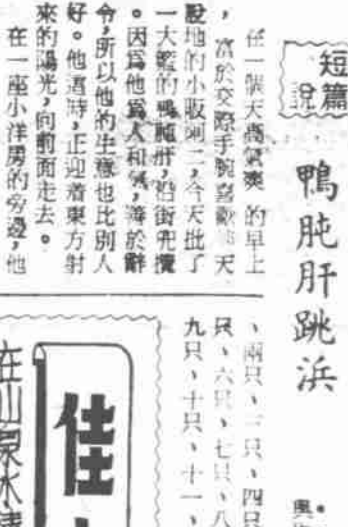 短篇
說
鴨肫肝跳浜
在一個天高氣爽的早上
，富於交際手腕喜歡 天
設地的小販阿二，今天批了
一大籃的鴨肫肝，沿街兜攬
。因爲他爲人和氣，善於辭
令，所以他的生意也比別人
好。他這時，正迎着東方射
來的陽光，向前面走去。
在一座小洋房的旁邊，他
、兩只、三只、四只
只、六只、七只、八
九只、十只、十一、
佳
在山泉水清